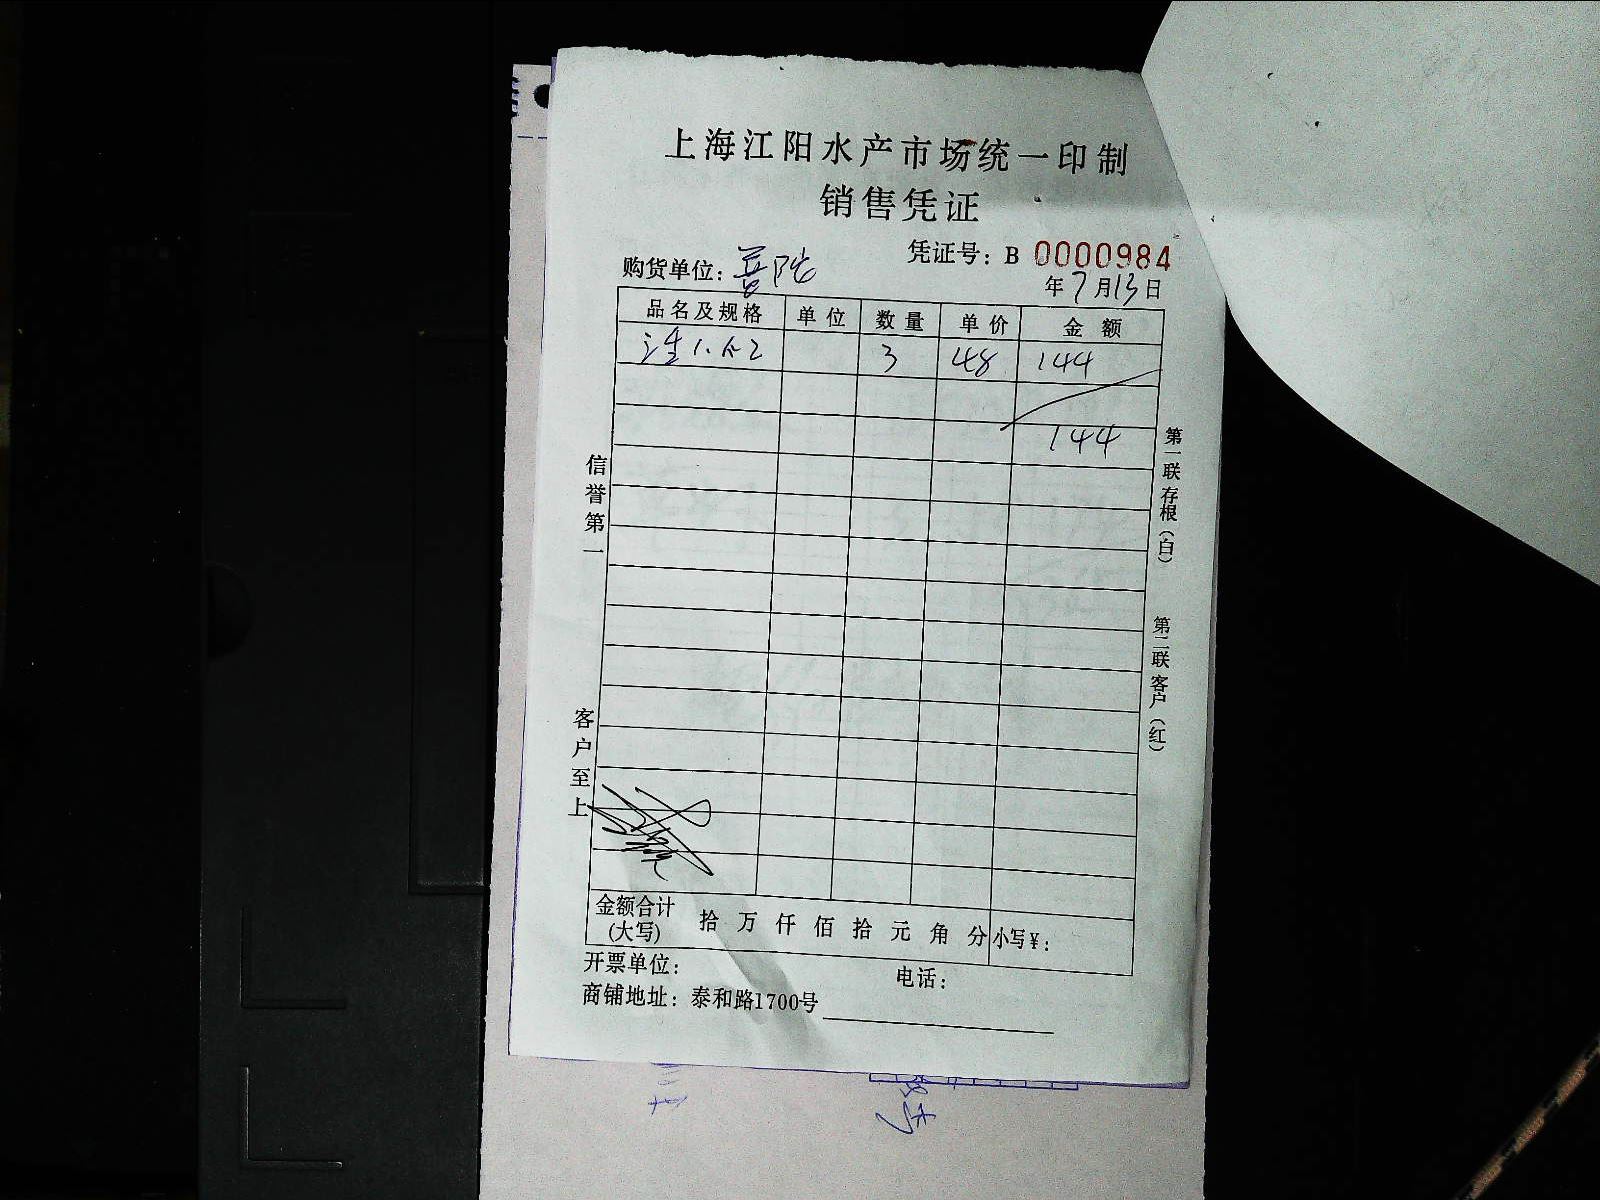 上海江阳水产市场统一印制
销售凭证
凭证号：B 0000984
购货单位：普陀
年7月13日
品名及规格 单位 数量 单价 金额
3 48 144
144
信誉第一
客户至上
第一联存根（白）
第二联客户（红）
金额合计（大写） 拾 万 仟 佰 拾 元 角 分 小写￥：
开票单位： 电话：
商铺地址：泰和路1700号